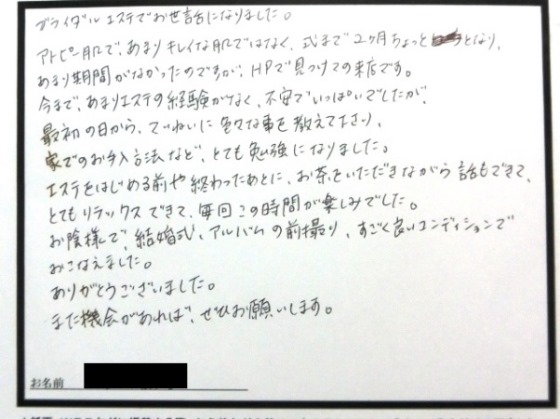 ブライダルエステでお世話になりました。
アトピー肌で、あまりキレイな肌ではなく、式まで2ヶ月ちょっととなり、
あまり期間がなかったのですが、HPで見つけての来店です。
今まで、あまりエステの経験がなく、不安でいっぱいでしたが、
最初の日から、ていねいに色々な事を教えて下さり、
家でのお手入方法など、とても勉強になりました。
エステをはじめる前や終わったあとに、お茶をいただきながら話もできて、
とてもリラックスできて、毎回この時間が楽しみでした。
お陰様で、結婚式、アルバムの前撮り、すごく良いコンディションで
おこなえました。
ありがとうございました。
また機会があれば、ぜひお願いします。
お名前